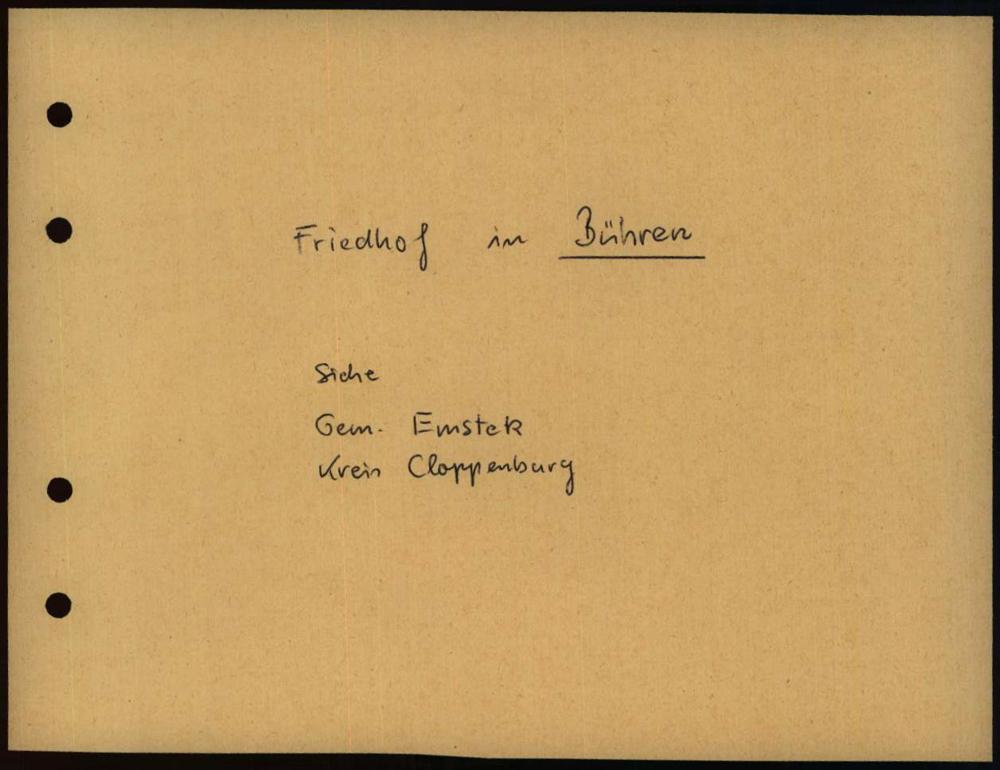 Friedhof in Bühren
Siehe
Gem. Emstek
Kreis Cloppenburg